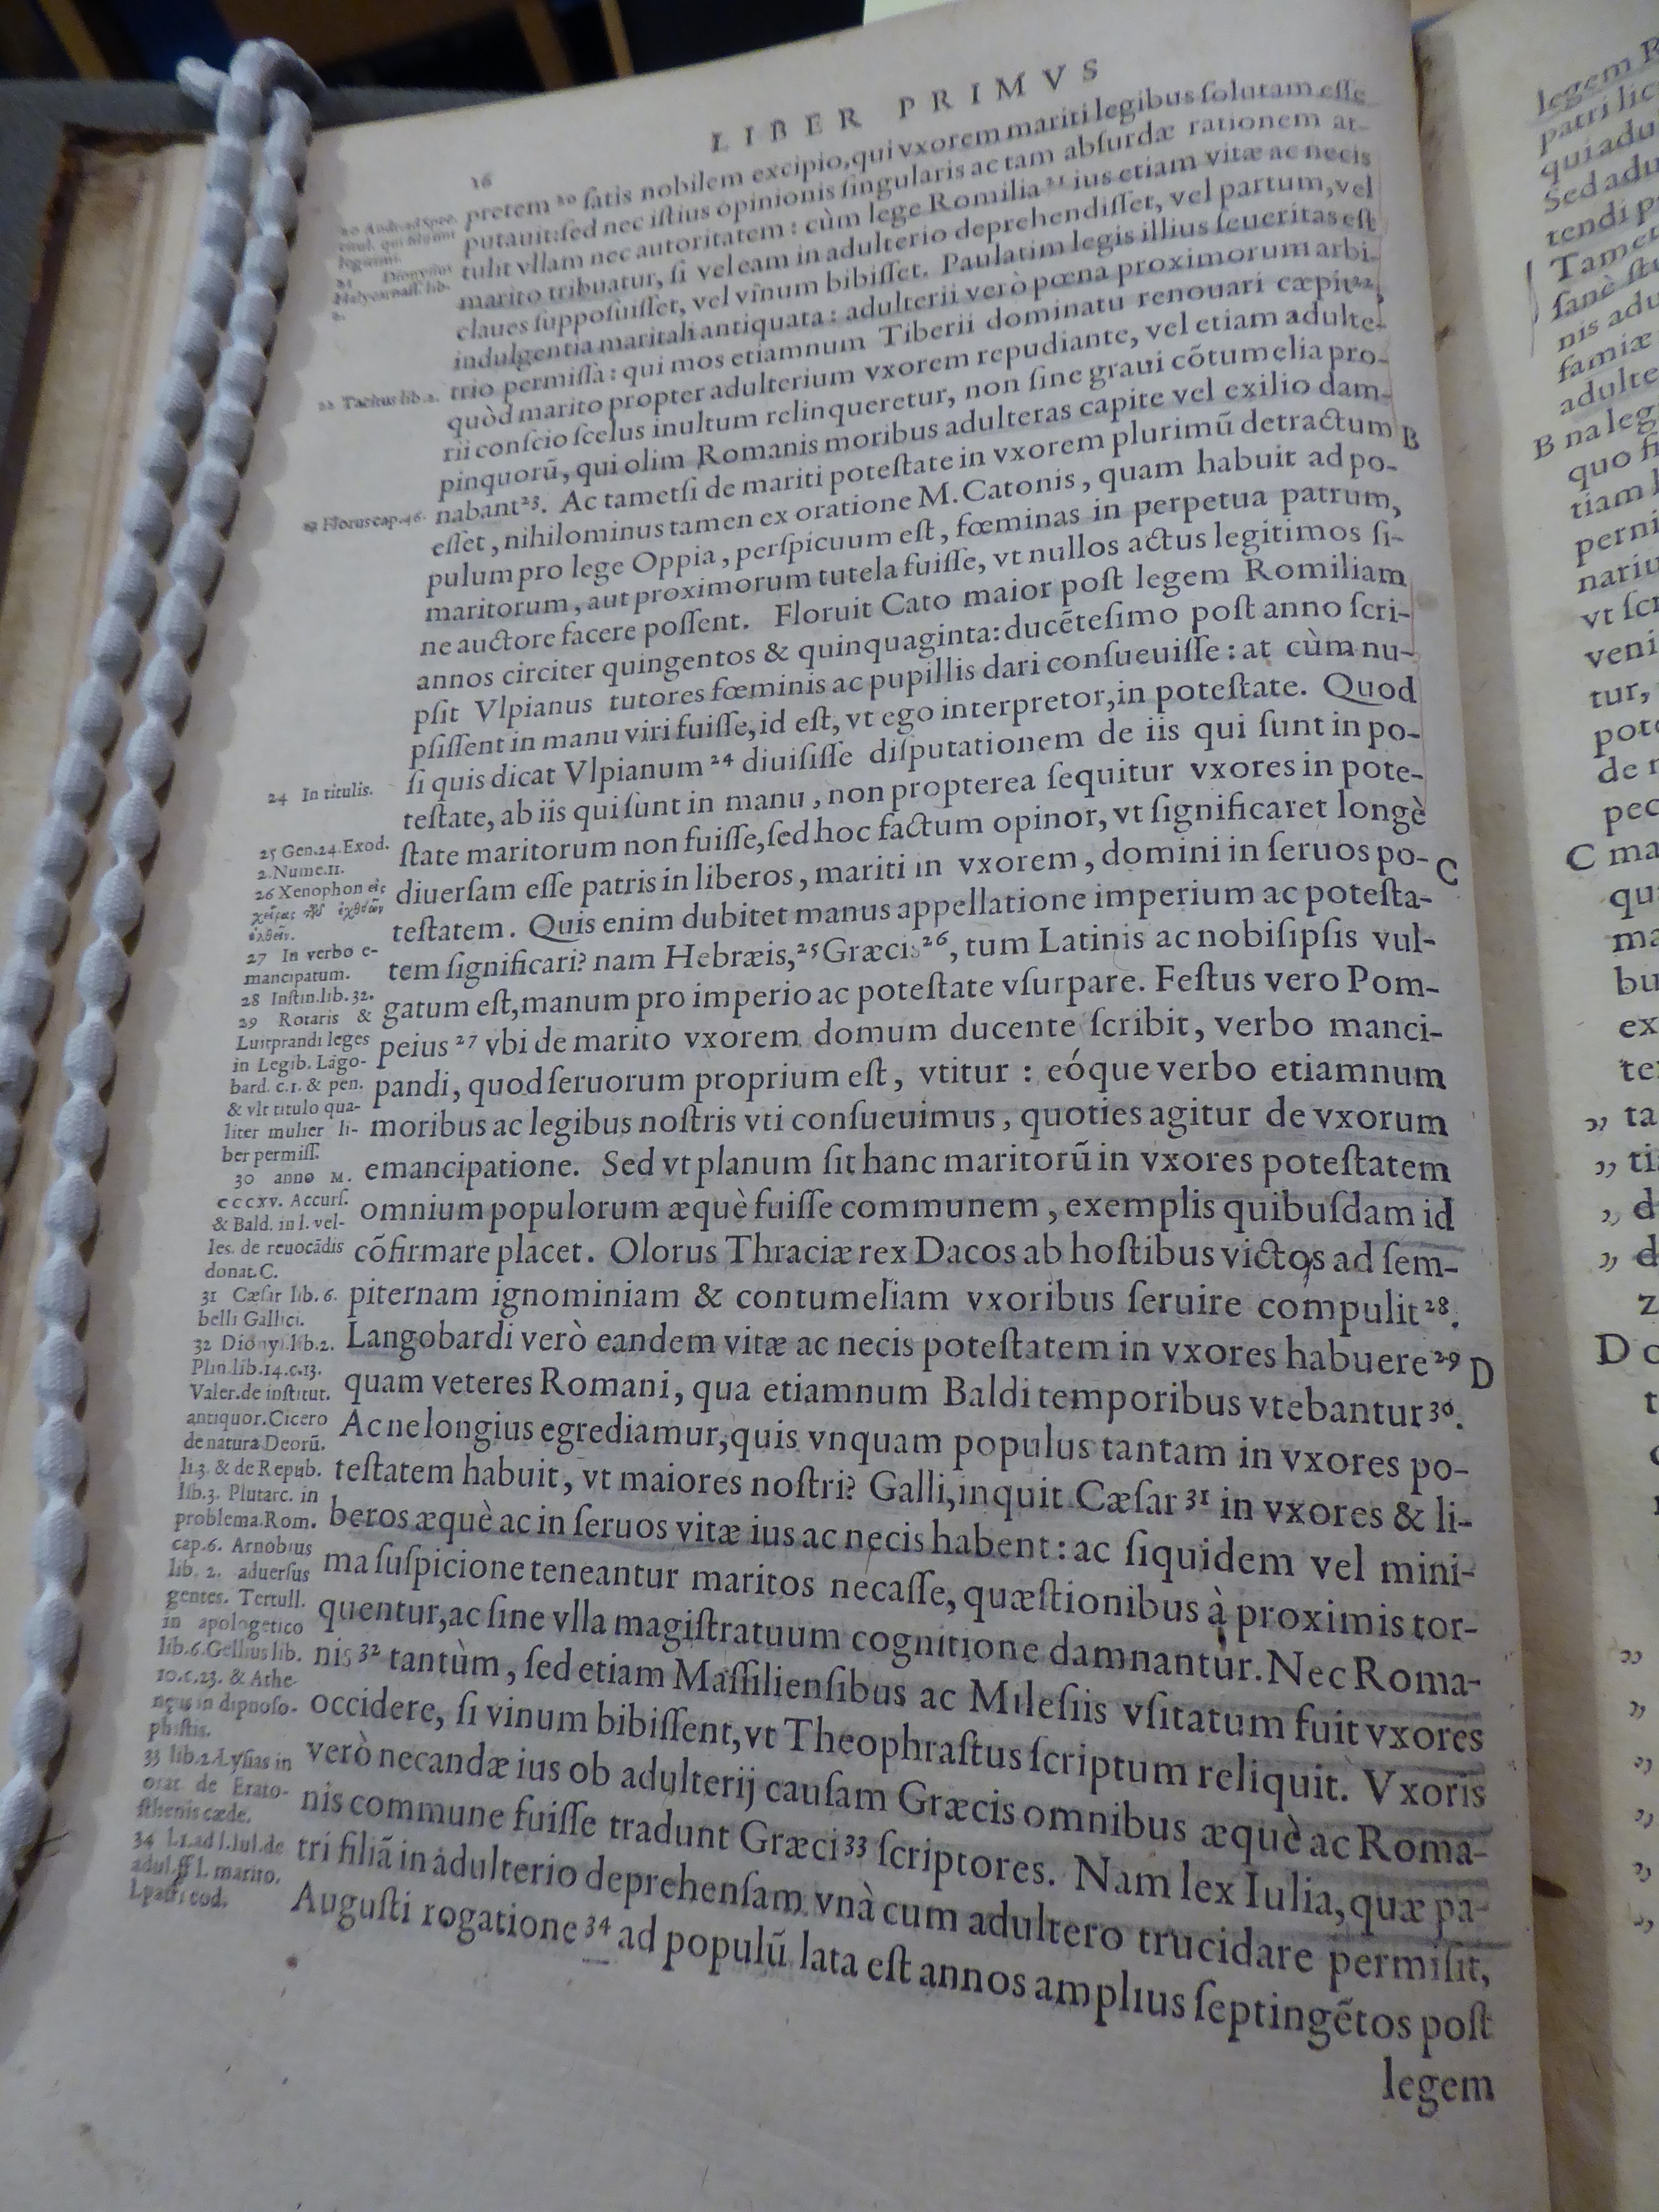 LIBER PRIMVS
16
pretem ²⁰ ſatis nobilem excipio, qui vxorem mariti legibus ſolutam eſſe
putauit: ſed nec iſtius opinionis ſingularis ac tam abſurdæ rationem at-
tulit vllam nec autoritatem: cùm lege Romilia ²¹ ius etiam vitæ ac necis
marito tribuatur, ſi vel eam in adulterio deprehendiſſet, vel partum, vel
claues ſuppoſuiſſet, vel vinum bibiſſet. Paulatim legis illius ſeueritas eſt
indulgentia maritali antiquata: adulterii verò pœna proximorum arbi-
trio permiſſa: qui mos etiamnum Tiberii dominatu renouari cæpit ²²,
quòd marito propter adulterium vxorem repudiante, vel etiam adulte-
rii conſcio ſcelus inultum relinqueretur, non ſine graui cõtumelia pro-
pinquorũ, qui olim Romanis moribus adulteras capite vel exilio dam-
nabant²³. Ac tametſi de mariti poteſtate in vxorem plurimũ detractum B
eſſet, nihilominus tamen ex oratione M. Catonis, quam habuit ad po-
pulum pro lege Oppia, perſpicuum eſt, fœminas in perpetua patrum,
maritorum, aut proximorum tutela fuiſſe, vt nullos actus legitimos ſi-
ne auctore facere poſſent. Floruit Cato maior poſt legem Romiliam
annos circiter quingentos & quinquaginta: ducẽteſimo poſt anno ſcri-
pſit Vlpianus tutores fœminis ac pupillis dari conſueuiſſe: at cùm nu-
pſiſſent in manu viri fuiſſe, id eſt, vt ego interpretor, in poteſtate. Quod
ſi quis dicat Vlpianum ²⁴ diuiſiſſe diſputationem de iis qui ſunt in po-
teſtate, ab iis qui ſunt in manu, non propterea ſequitur vxores in pote-
ſtate maritorum non fuiſſe, ſed hoc factum opinor, vt ſignificaret longè
diuerſam eſſe patris in liberos, mariti in vxorem, domini in ſeruos po- C
teſtatem. Quis enim dubitet manus appellatione imperium ac poteſta-
tem ſignificari? nam Hebræis, ²⁵ Græcis ²⁶, tum Latinis ac nobiſipſis vul-
gatum eſt, manum pro imperio ac poteſtate vſurpare. Feſtus vero Pom-
peius ²⁷ vbi de marito vxorem domum ducente ſcribit, verbo manci-
pandi, quod ſeruorum proprium eſt, vtitur: eóque verbo etiamnum
moribus ac legibus noſtris vti conſueuimus, quoties agitur de vxorum
emancipatione. Sed vt planum ſit hanc maritorũ in vxores poteſtatem
omnium populorum æquè fuiſſe communem, exemplis quibuſdam id
cõfirmare placet. Olorus Thraciæ rex Dacos ab hoſtibus victos ad ſem-
piternam ignominiam & contumeliam vxoribus ſeruire compulit ²⁸.
Langobardi verò eandem vitæ ac necis poteſtatem in vxores habuere ²⁹ D
quam veteres Romani, qua etiamnum Baldi temporibus vtebantur ³⁰.
Ac ne longius egrediamur, quis vnquam populus tantam in vxores po-
teſtatem habuit, vt maiores noſtri? Galli, inquit Cæſar ³¹ in vxores & li-
beros æquè ac in ſeruos vitæ ius ac necis habent: ac ſiquidem vel mini-
ma ſuſpicione teneantur maritos necaſſe, quæſtionibus à proximis tor-
quentur, ac ſine vlla magiſtratuum cognitione damnantur. Nec Roma-
nis ³² tantùm, ſed etiam Maſſilienſibus ac Mileſiis vſitatum fuit vxores
occidere, ſi vinum bibiſſent, vt Theophraſtus ſcriptum reliquit. Vxoris
verò necandæ ius ob adulterij cauſam Græcis omnibus æquè ac Roma-
nis commune fuiſſe tradunt Græci ³³ ſcriptores. Nam lex Iulia, quæ pa-
tri filiã in adulterio deprehenſam vnà cum adultero trucidare permiſit,
Auguſti rogatione ³⁴ ad populũ lata eſt annos amplius ſeptingẽtos poſt
legem
20 Andr. ad Spec.
titul. qui filii ſint
legitimi.
21 Dionyſius
Halycarnaſſ. lib.
2.
22 Tacitus lib. 2.
23 Florus cap. 46.
24 In titulis.
25 Gen. 24. Exod.
2. Nume. 11.
26 Xenophon εἰς
χεῖρας τῶν ἐχθρῶν
ἐλθεῖν.
27 In verbo e-
mancipatum.
28 Inſtin. lib. 32.
29 Rotaris &
Luitprandi leges
in Legib. Lãgo-
bard. c. 1. & pen.
& vlt titulo qua-
liter mulier li-
ber permiſſ.
30 anno M.
CCCXV. Accurſ.
& Bald. in l. vel-
les. de reuocãdis
donat. C.
31 Cæſar lib. 6.
belli Gallici.
32 Dionyſ. lib. 2.
Plin. lib. 14. c. 13.
Valer. de inſtitut.
antiquor. Cicero
de natura Deorũ.
li. 3. & de Repub.
lib. 3. Plutarc. in
problema. Rom.
cap. 6. Arnobius
lib. 2. aduerſus
gentes. Tertull.
in apologetico
lib. 6. Gellius lib.
10. c. 23. & Athe-
neus in dipnoſo-
phiſtis.
33 lib. 2. Lyſias in
orat. de Erato-
ſthenis cæde.
34 L. 1. ad l. Iul. de
adul. ff l. marito.
l. patri eod.
legem
patri lic
qui adu
Sed adu
tendi p
Tamet
ſanè ſt
nis adu
famiæ
adulte
B na leg
quo fi
tiam
perni
nariu
vt ſcr
veni
tur,
pote
de
pec
C ma
qu
ma
bu
ex
te
„ ta
„ ti
„ d
„ d
z
D